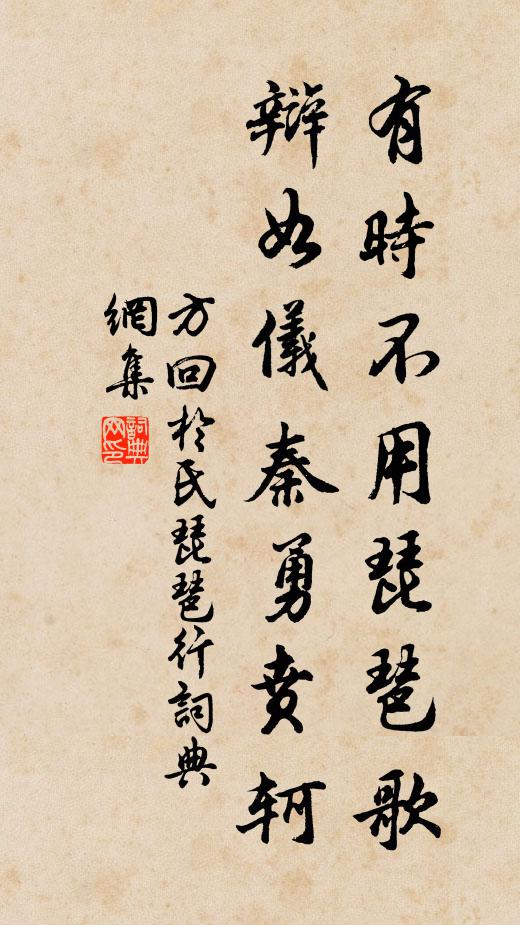 有時不用琵琶歌
辯如儀秦勇賁軻
方回於氏琵琶行詞典
網集
詞典
网印